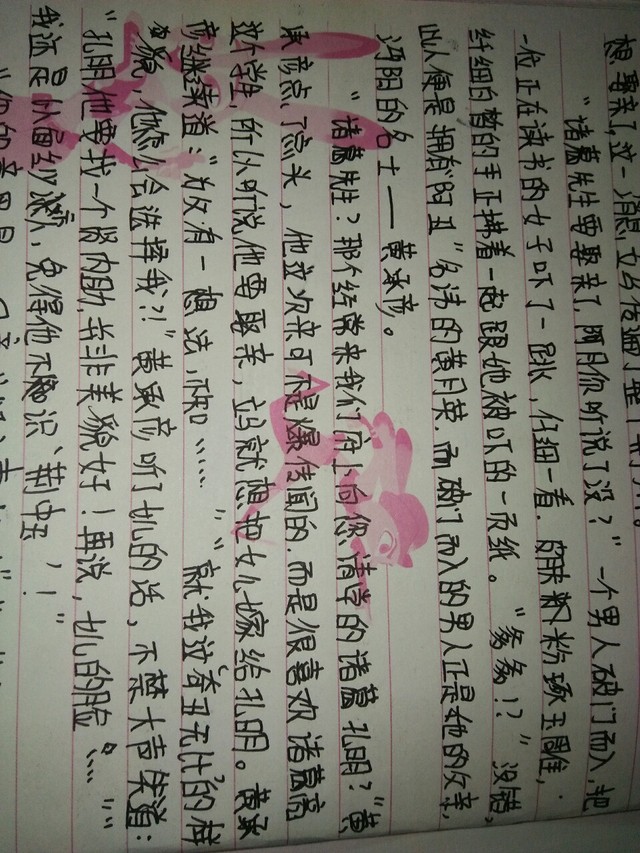 想要亲了,这一消息,立刻传遍了整
"诸葛先生要娶亲了,阿月你听说了没?"一个男人破门而入,把
一位正在读书的女子吓了一跳,仔细一看.肌肤粉粉琢玉雕,
纤细白皙的手正拂着一起跟她被吓的一页纸。"爹爹!?"没错,
此人便是拥有"阿丑"名讳的黄月英.而破门而入的男人正是她的父亲,
沔阳的名士——黄承彦。
"诸葛先生?那个经常来我们府上向您请学的诸葛孔明?"黄
承彦点了点头,他这次来可不是爆传闻的.而是很喜欢诸葛亮
这个学生,所以听说他要娶亲,立马就想把女儿嫁给孔明。黄承
彦继续道:"为父有一想法,不知……""就我这奇丑无比的样
貌,他怎么会选择我?!"黄承彦听了女儿的话,不禁大声笑道:
"孔明他要找一个贤内助,并非美貌好!再说,女儿的脸……""
我还是以面纱掩,免得他不识'荆中玉'!"